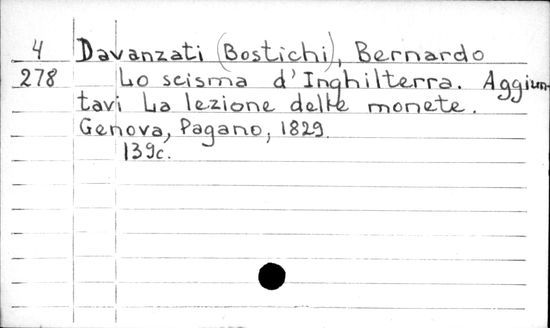 4 Davanzati (Bostichi), Bernardo
278 Lo scisma d'Inghilterra. Aggiun-
tavi La lezione delle monete.
Genova, Pagano, 1829.
139c.